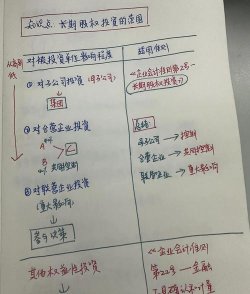 知识点：长期股权投资的范围
对被投资单位影响程度
适用准则
① 对子公司投资（母子公司）
↓
集团
《企业会计准则第2号—
长期股权投资》
② 对合营企业投资
A
C
B
共同控制
总结：
母子公司 → 控制
合营企业 → 共同控制
联营企业 → 重大影响
③ 对联营企业投资
（重大影响）
↓
参与决策
其他权益性投资
《企业会计准则
第22号——金融
工具确认和计量